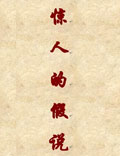 惊人的假说